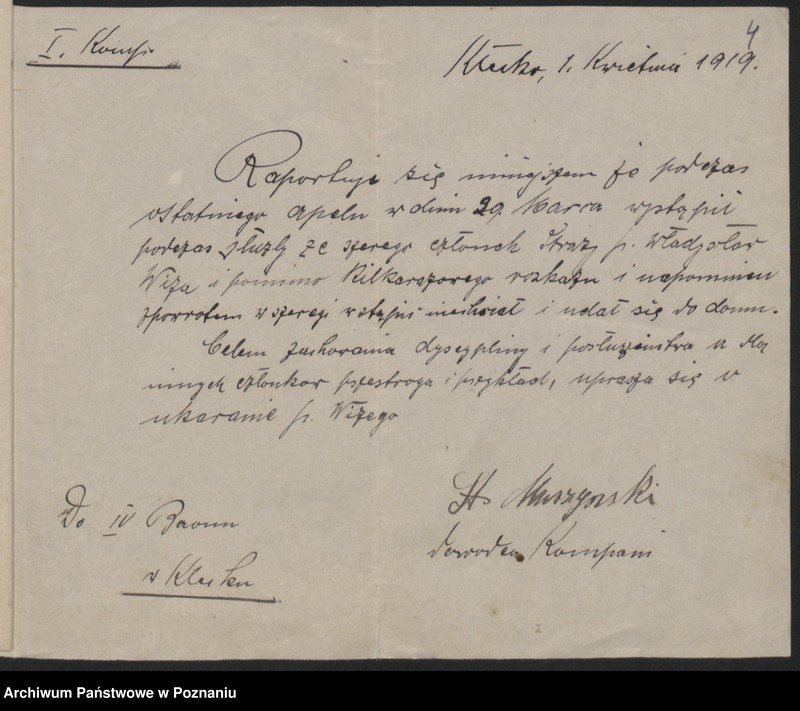 4
I. Komp.
Kłecko, 1. Kwietnia 1919.
Raportuję się niniejszem że podczas
ostatniego apelu w dniu 29. Marca wystąpił
podczas służby ze szerego członek Straży p. Władysław
Wiza i pomimo kilkarazowego rozkazu i napomnien
spowrotem w szeregi wstąpić niechciał i udał się do domu.
Celem zachowania dyscypliny i posłuszeństwa a dla
innych członków przestroga i przykład, uprasza się o
ukaranie p. Wizego
St. Muszynski
dowodca Kompani
Do IV Baonu
w Klecku
Archiwum Państwowe w Poznaniu